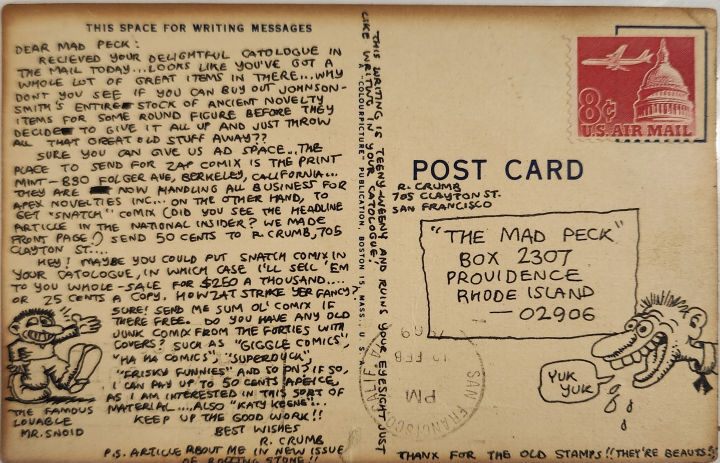 THIS SPACE FOR WRITING MESSAGES
DEAR MAD PECK:
RECIEVED YOUR DELIGHTFUL CATOLOGUE IN
THE MAIL TODAY...LOOKS LIKE YOU'VE GOT A
WHOLE LOT OF GREAT ITEMS IN THERE...WHY
DONT YOU SEE IF YOU CAN BUY OUT JOHNSON-
SMITH'S ENTIRE STOCK OF ANCIENT NOVELTY
ITEMS FOR SOME ROUND FIGURE BEFORE THEY
DECIDE TO GIVE IT ALL UP AND JUST THROW
ALL THAT GREAT OLD STUFF AWAY??
SURE YOU CAN GIVE US AD SPACE...THE
PLACE TO SEND FOR ZAP COMIX IS THE PRINT
MINT-830 FOLGER AVE, BERKELEY, CALIFORNIA...
THEY ARE NOW HANDLING ALL BUSINESS FOR
APEX NOVELTIES INC... ON THE OTHER HAND, TO
GET "SNATCH" COMIX (DID YOU SEE THE HEADLINE
ARTICLE IN THE NATIONAL INSIDER? WE MADE
FRONT PAGE!) SEND 50 CENTS TO R. CRUMB, 705
CLAYTON ST....
HEY! MAYBE YOU COULD PUT SNATCH COMIX IN
YOUR CATOLOGUE, IN WHICH CASE I'LL SELL 'EM
TO YOU WHOLE-SALE FOR $250 A THOUSAND....
OR 25 CENTS A COPY. HOWZAT STRIKE YER FANCY?
SURE! SEND ME SUM OL' COMIX IF
THERE FREE. DO YOU HAVE ANY OLD
JUNK COMIX FROM THE FORTIES WITH
COVERS? SUCH AS "GIGGLE COMICS",
"HA HA COMICS", "SUPERDUCK",
"FRISKY FUNNIES" AND SO ON? IF SO,
I CAN PAY UP TO 50 CENTS APEICE,
AS I AM INTERESTED IN THIS SORT OF
MATERIAL....ALSO "KATY KEENE"...
KEEP UP THE GOOD WORK!!
BEST WISHES
R. CRUMB
P.S. ARTICLE ABOUT ME IN NEW ISSUE
OF ROLLING STONE!!
THE FAMOUS
LOVABLE
MR. SNOID
THIS WRITING IS TEENY-WEENY AND RUINS YOUR EYESIGHT JUST
LIKE WRITING IN YOUR CATOLOGUE!
A "COLOURPICTURE" PUBLICATION, BOSTON 15, MASS., U. S. A.
8¢
U.S. AIR MAIL
POST CARD
R. CRUMB
705 CLAYTON ST.
SAN FRANCISCO
"THE MAD PECK"
BOX 2307
PROVIDENCE
RHODE ISLAND
—02906
SAN FRANCISCO CALIF
PM
FEB
1969
YUK
YUK
THANX FOR THE OLD STAMPS!! THEY'RE BEAUTS!